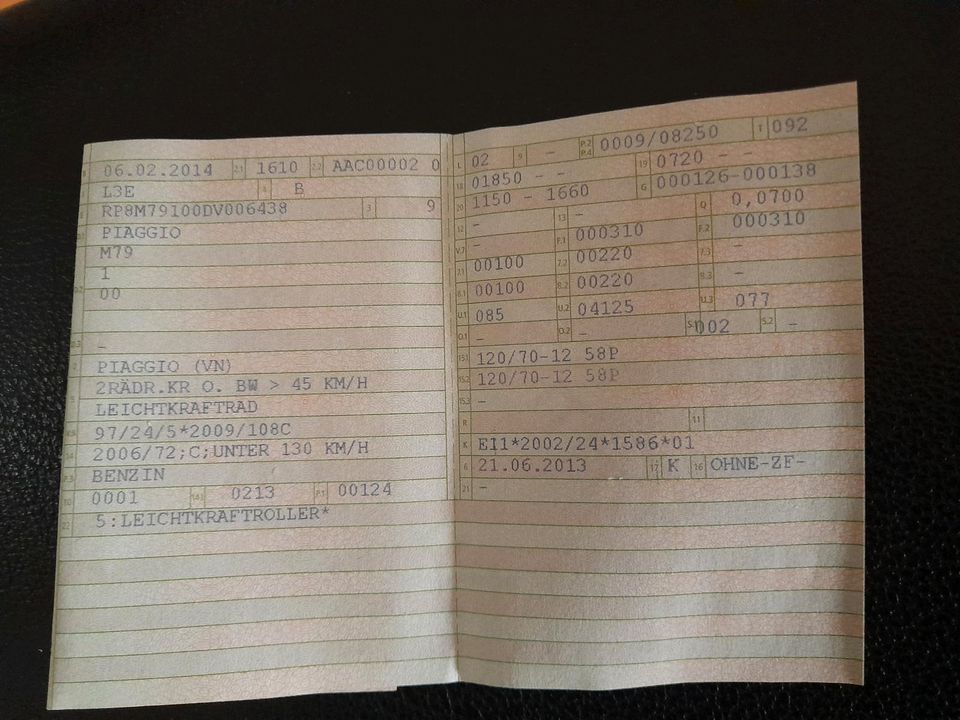 B 06.02.2014 2.1 1610 2.2 AAC00002 0
L3E 4 B
E RP8M79100DV006438 3 9
PIAGGIO
M79
1
00
-
2 PIAGGIO (VN)
5 2RÄDR.KR O. BW > 45 KM/H
LEICHTKRAFTRAD
97/24/5*2009/108C
14 2006/72;C;UNTER 130 KM/H
P.3 BENZIN
10 0001 14.1 0213 P.1 00124
22 5:LEICHTKRAFTROLLER*
L 02 9 - P.2 P.4 0009/08250 T 092
18 01850 - - 19 0720 - -
20 1150 - 1660 G 000126-000138
12 - 13 - Q 0,0700
V.7 - F.1 000310 F.2 000310
7.1 00100 7.2 00220 7.3 -
8.1 00100 8.2 00220 8.3 -
U.1 085 U.2 04125 U.3 077
O.1 - O.2 - S.1 002 S.2 -
15.1 120/70-12 58P
15.2 120/70-12 58P
15.3 -
R 11
K EI1*2002/24*1586*01
6 21.06.2013 17 K 16 OHNE-ZF-
21 -